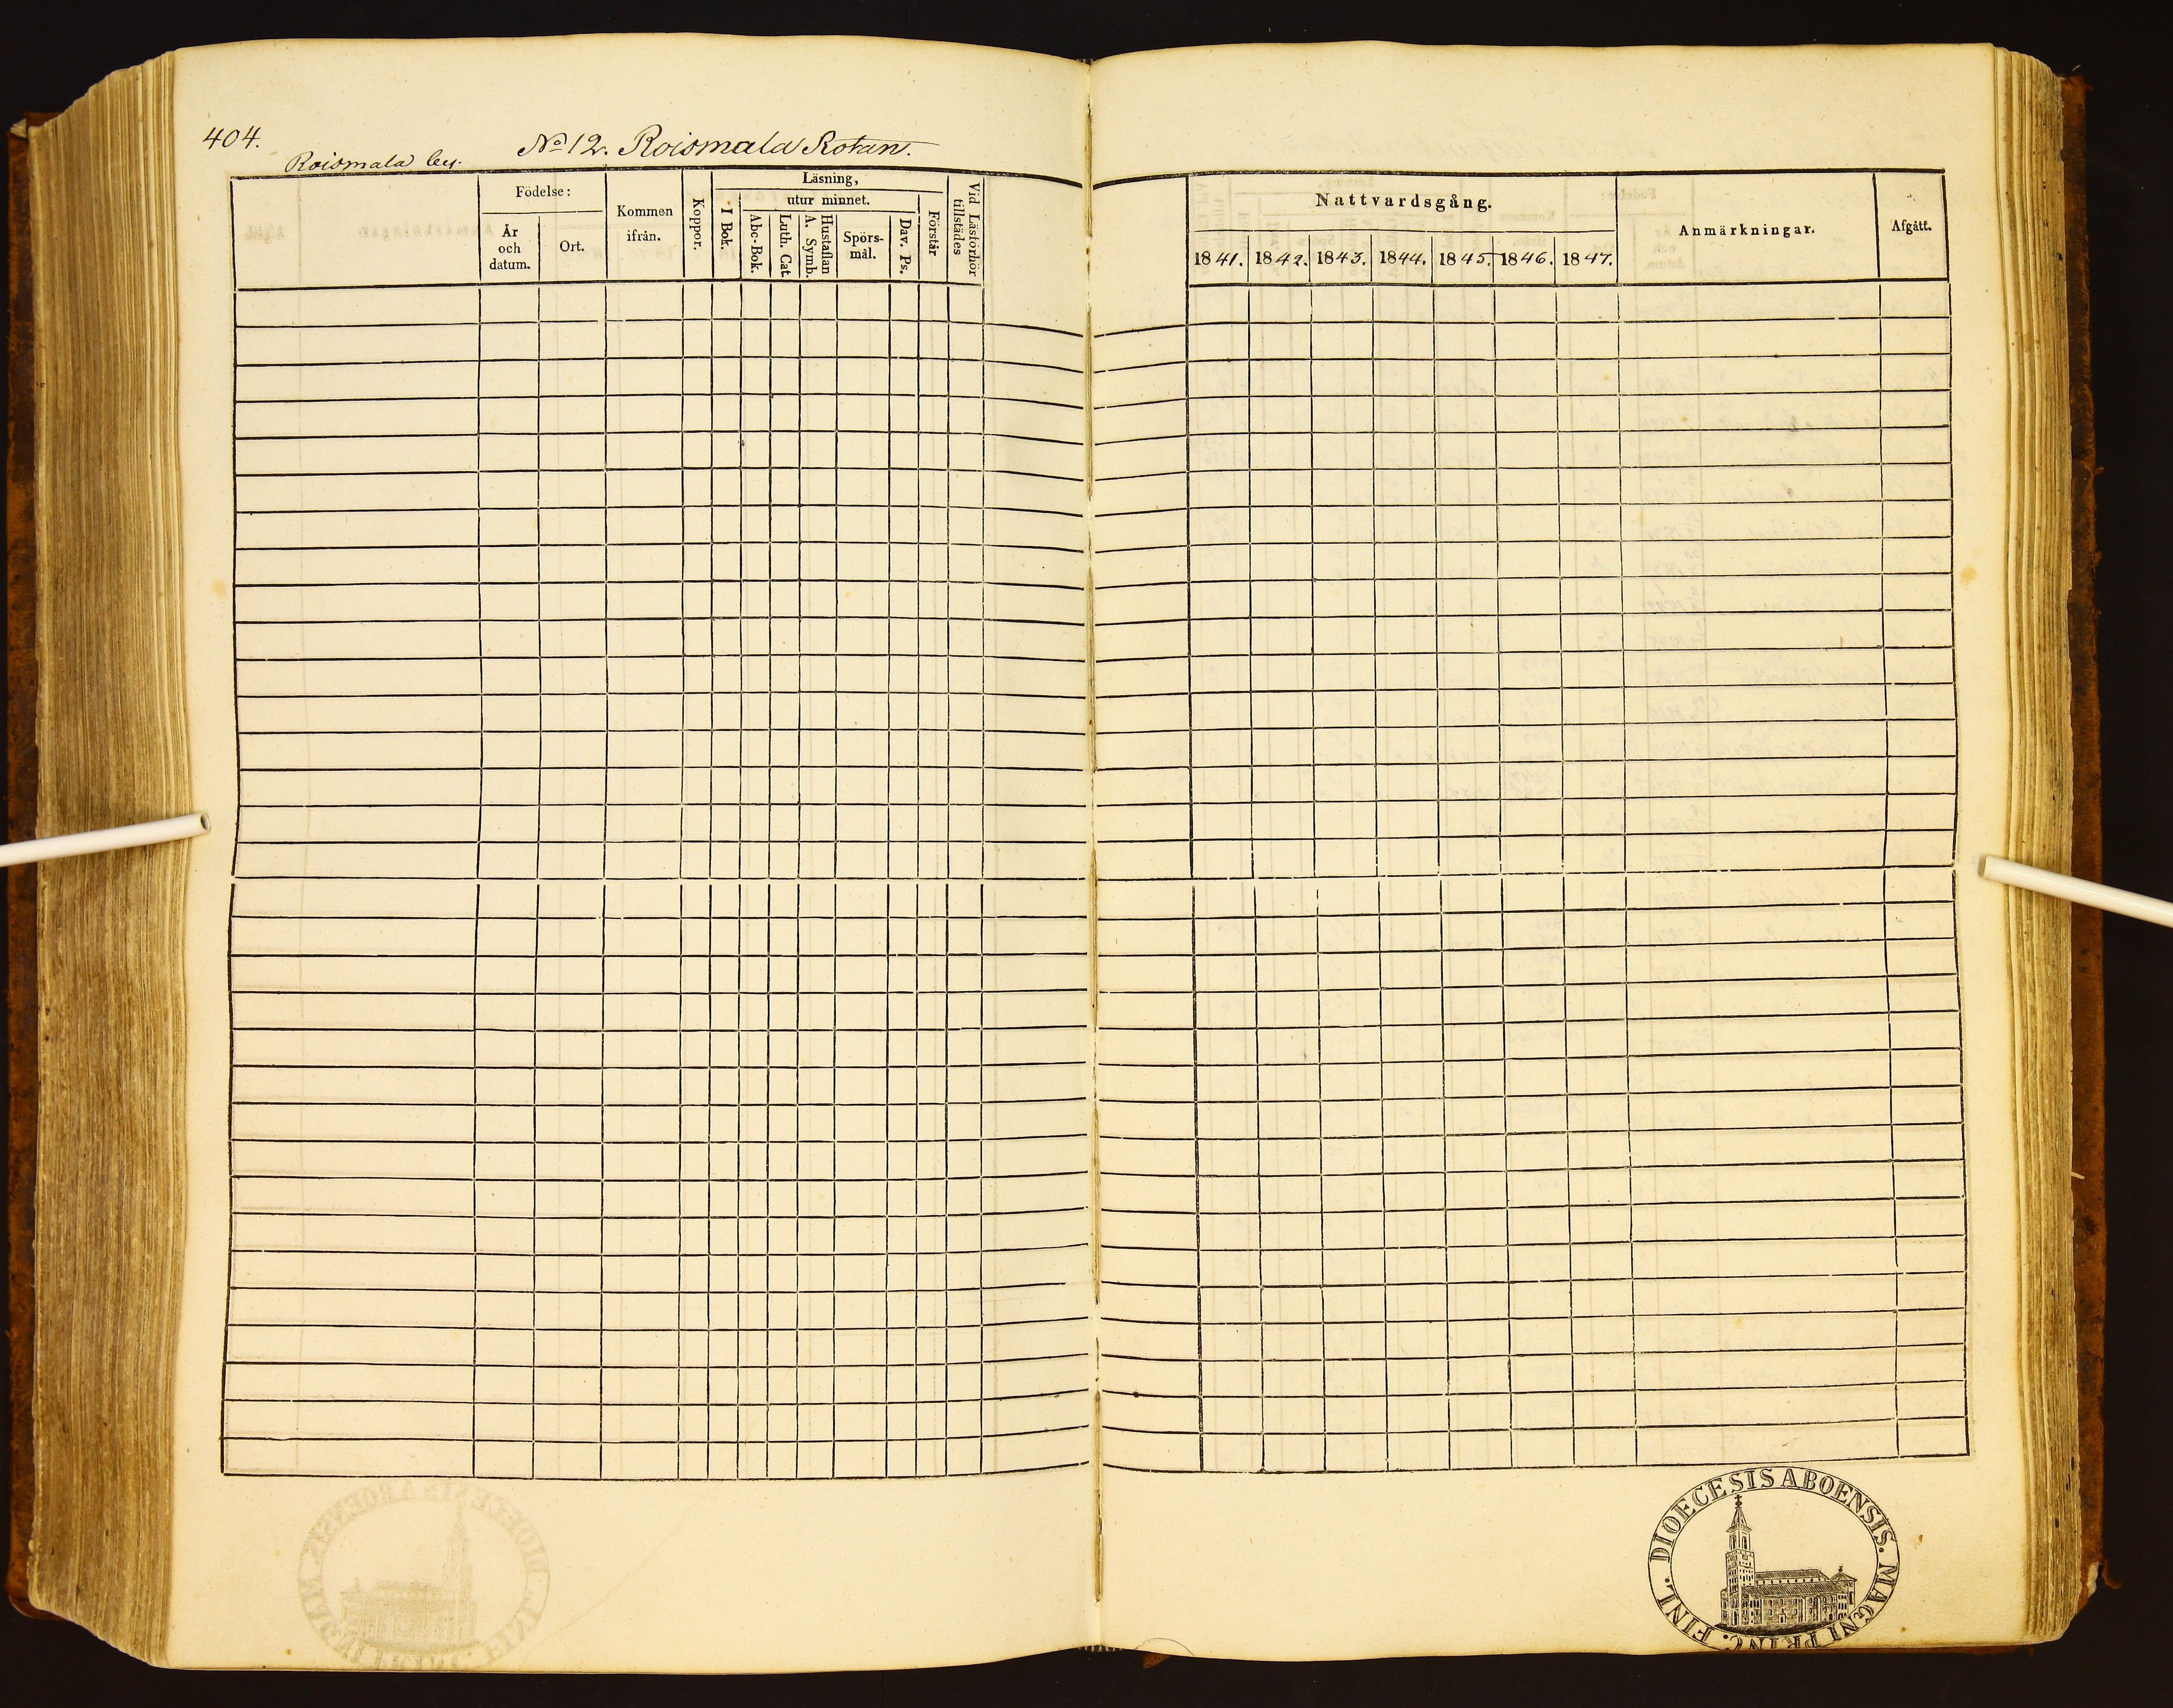 404.
No 12. Roismala Rotan.
Roismala by.
Födelse:
År och datum.
Ort.
Kommen ifrån.
Koppor.
Läsning,
I Bok.
utur minnet.
Abc-Bok.
Luth. Cat.
Hustaflan A. Symb.
Spörs-mål.
Dav. Ps.
Förstår
Vid Läsförhör tillstädes
Nattvardsgång.
1841. 1842. 1843. 1844. 1845. 1846. 1847.
Anmärkningar.
Afgått.
DIOECESIS ABOENSIS. MAGNI PRINC. FINL.